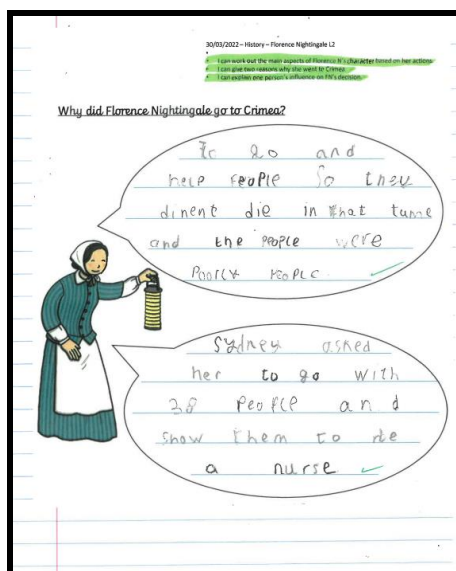 30/03/2022 – History – Florence Nightingale L2
I can work out the main aspects of Florence N's character based on her actions.
I can give two reasons why she went to Crimea.
I can explain one person's influence on FN's decision.
Why did Florence Nightingale go to Crimea?
To go and
help people so they
dinent die in that tume
and the people were
poorly people
Sydney asked
her to go with
38 people and
show them to de
a nurse